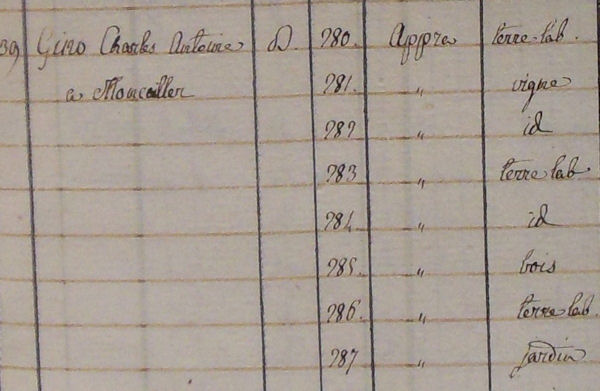 39 Gino Charles Antoine D. 280. Appra terre lab.
a Moncaller 281. " vigne
282 " id
283 " terre lab
284 " id
285. " bois
286. " terre lab.
287 " jardin